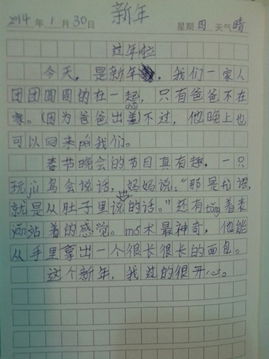 新年
2014年1月30日 星期四 天气晴
过年啦
今天，是新年，我们一家人
团团圆圆的在一起，只有爸爸不在
。(因为爸爸出差)不过，他晚上也
可以回来péi我们。
春节晚会的节目真有趣，一只
玩jù鸟会说话，妈妈说："那是腹语，
就是从肚子里说的话。"还有
着的感觉。mó术最神奇，他能
从手里拿出一个很长很长的面包。
这个新年，我过的很开心。